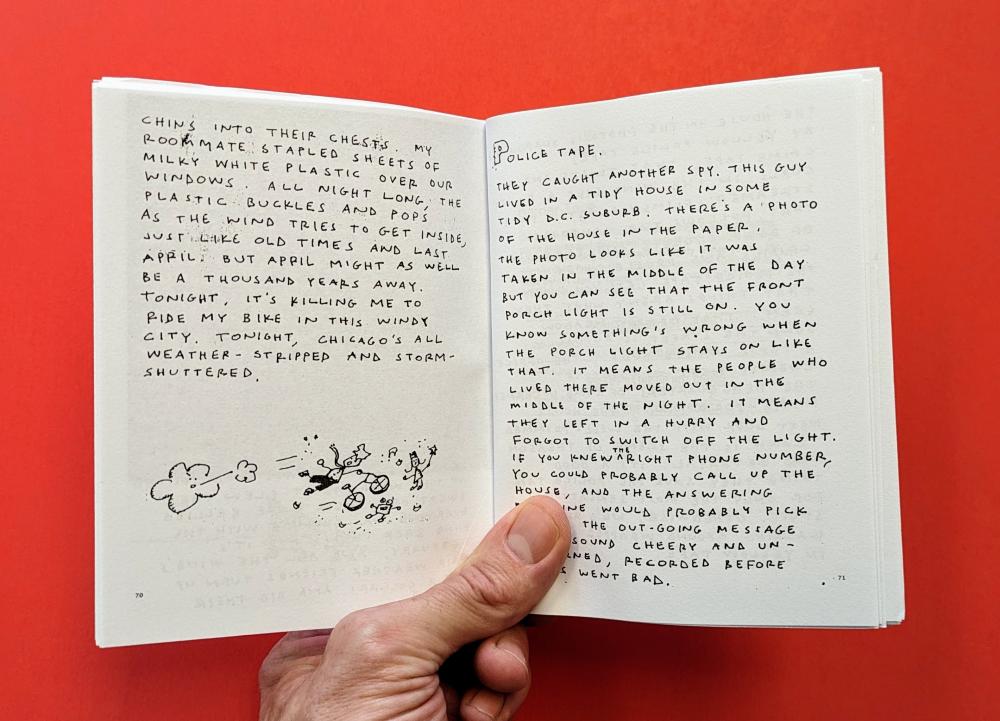 CHINS INTO THEIR CHESTS. MY
ROOMMATE STAPLED SHEETS OF
MILKY WHITE PLASTIC OVER OUR
WINDOWS. ALL NIGHT LONG, THE
PLASTIC BUCKLES AND POPS
AS THE WIND TRIES TO GET INSIDE,
JUST LIKE OLD TIMES AND LAST
APRIL. BUT APRIL MIGHT AS WELL
BE A THOUSAND YEARS AWAY.
TONIGHT, IT'S KILLING ME TO
RIDE MY BIKE IN THIS WINDY
CITY. TONIGHT, CHICAGO'S ALL
WEATHER-STRIPPED AND STORM-
SHUTTERED.
70
POLICE TAPE.
THEY CAUGHT ANOTHER SPY. THIS GUY
LIVED IN A TIDY HOUSE IN SOME
TIDY D.C. SUBURB. THERE'S A PHOTO
OF THE HOUSE IN THE PAPER.
THE PHOTO LOOKS LIKE IT WAS
TAKEN IN THE MIDDLE OF THE DAY
BUT YOU CAN SEE THAT THE FRONT
PORCH LIGHT IS STILL ON. YOU
KNOW SOMETHING'S WRONG WHEN
THE PORCH LIGHT STAYS ON LIKE
THAT. IT MEANS THE PEOPLE WHO
LIVED THERE MOVED OUT IN THE
MIDDLE OF THE NIGHT. IT MEANS
THEY LEFT IN A HURRY AND
FORGOT TO SWITCH OFF THE LIGHT.
IF YOU KNEW THE RIGHT PHONE NUMBER,
YOU COULD PROBABLY CALL UP THE
HOUSE, AND THE ANSWERING
WOULD PROBABLY PICK
THE OUT-GOING MESSAGE
SOUND CHEERY AND UN-
RECORDED BEFORE
WENT BAD.
71